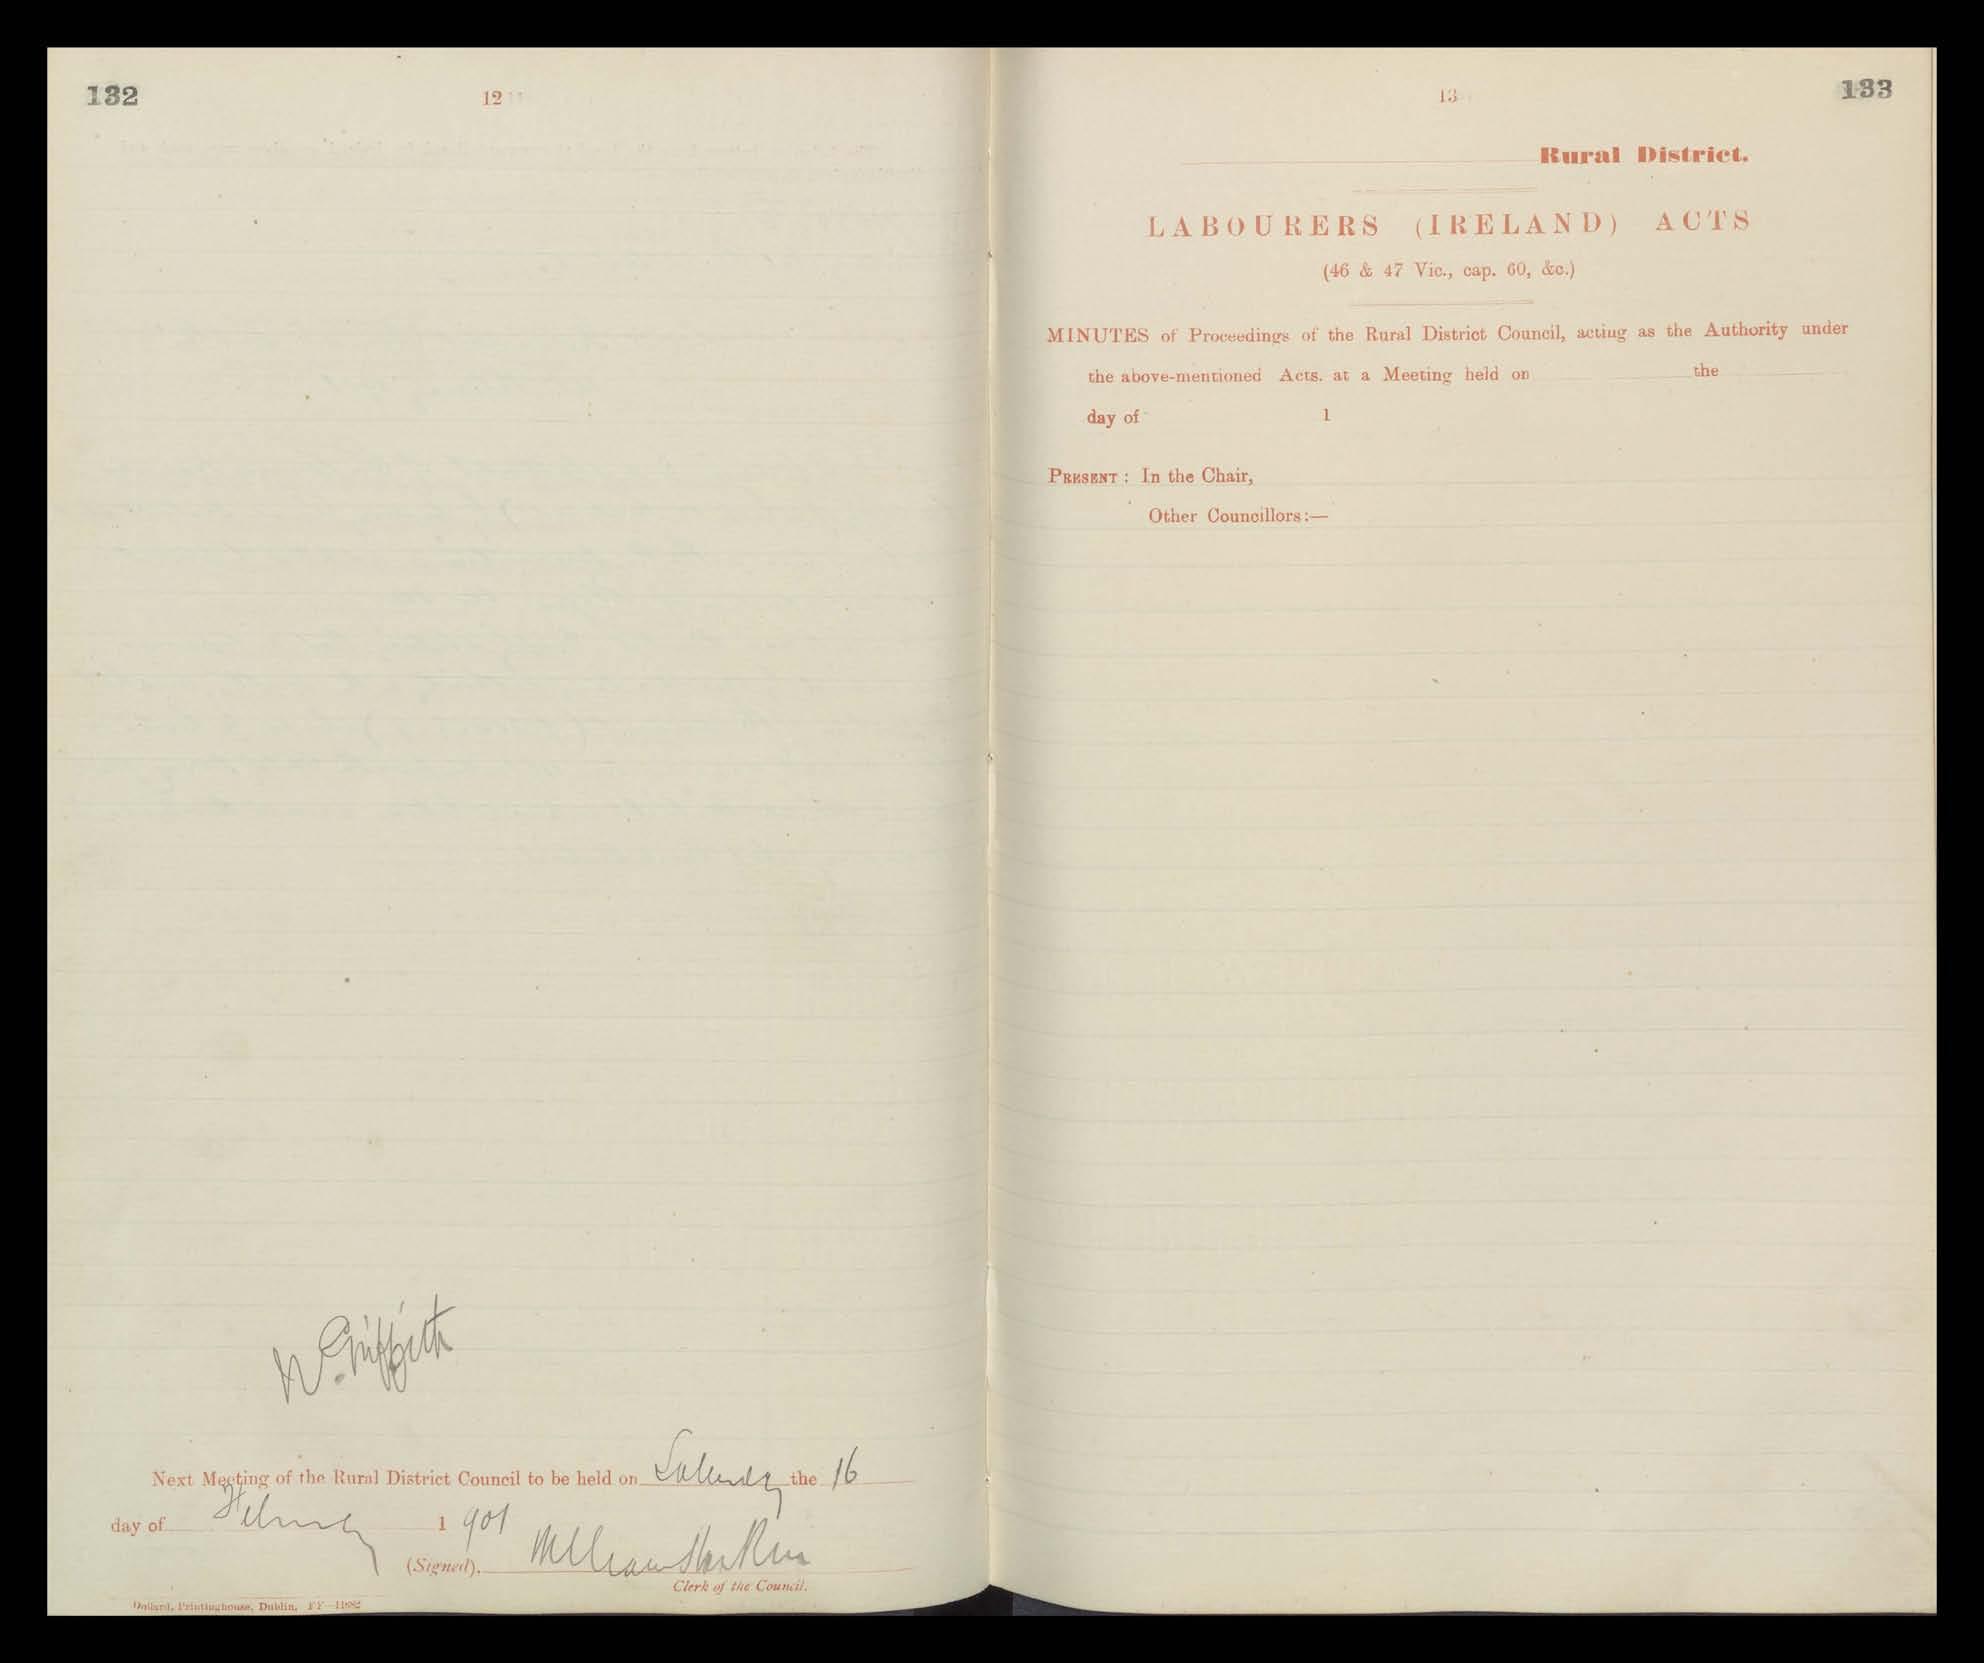 132
12
W. Griffith
Next Meeting of the Rural District Council to be held on Saturday the 16
day of February 1 901
(Signed),
Clerk of the Council.
Dollard, Printinghouse, Dublin,
13
133
Rural District.
LABOURERS (IRELAND) ACTS
(46 & 47 Vic., cap. 60, &c.)
MINUTES of Proceedings of the Rural District Council, acting as the Authority under
the above-mentioned Acts. at a Meeting held on the
day of 1
PRESENT : In the Chair,
Other Councillors:—